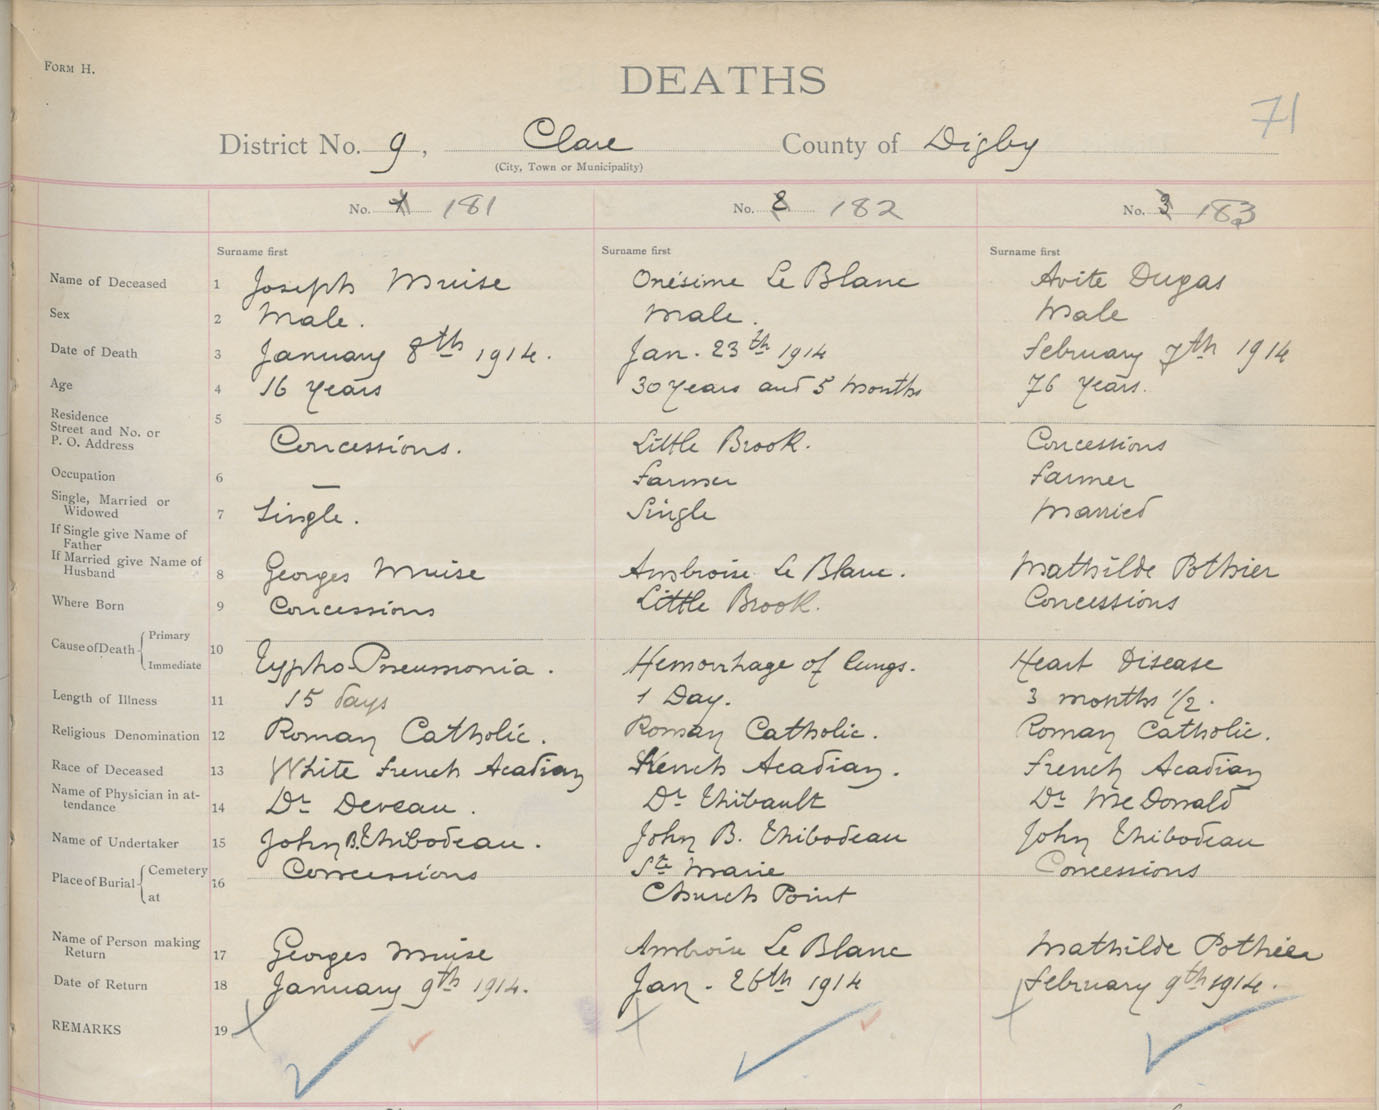 FORM H.
DEATHS
71
District No. 9, Clare County of Digby
(City, Town or Municipality)
No. 1 181 No. 2 182 No. 3 183
Surname first Surname first Surname first
Name of Deceased 1 Joseph Muise Onésime Le Blanc Avite Dugas
Sex 2 Male. Male. Male
Date of Death 3 January 8th 1914. Jan. 23th 1914 February 7th 1914
Age 4 16 Years 30 Years and 5 Months 76 Years.
Residence
Street and No. or
P. O. Address 5 Concessions. Little Brook. Concessions
Occupation 6 — Farmer Farmer
Single, Married or
Widowed 7 Single. Single Married
If Single give Name of
Father
If Married give Name of
Husband 8 Georges Muise Ambroise Le Blanc. Mathilde Pothier
Where Born 9 Concessions Little Brook. Concessions
Cause of Death Primary
Immediate 10 Typho-Pneumonia. Hemorrhage of lungs. Heart Disease
Length of Illness 11 15 days 1 Day. 3 months 1/2.
Religious Denomination 12 Roman Catholic. Roman Catholic. Roman Catholic.
Race of Deceased 13 White French Acadian French Acadian. French Acadian
Name of Physician in at-
tendance 14 Dr Deveau. Dr Thibault Dr McDonald
Name of Undertaker 15 John B. Thibodeau. John B. Thibodeau John Thibodeau
Place of Burial Cemetery 16 Concessions Ste Marie Concessions
at Church Point
Name of Person making
Return 17 Georges Muise Ambroise Le Blanc Mathilde Pothier
Date of Return 18 January 9th 1914. Jan. 26th 1914 February 9th 1914.
REMARKS 19